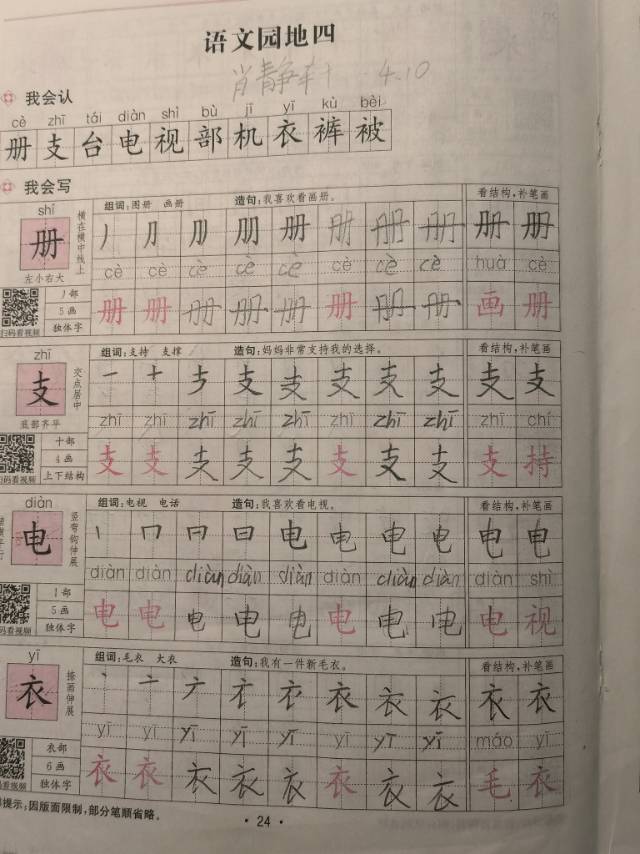 语文园地四
肖静轩 4.10
我会认
cè zhī tái diàn shì bù jī yī kù bèi
册 支 台 电 视 部 机 衣 裤 被
我会写
shū
组词:图册 画册 造句:我喜欢看画册。 看结构,补笔画
册 横在横中线上 丿 册 册 册 册 册 册 册
左小右大
cè cè cè cè cè cè cè huà cè
丿部
5画
独体字
扫码看视频
册 册 册 册 册 册 册 册 画 册
zhī
组词:支持 支撑 造句:妈妈非常支持我的选择。 看结构,补笔画
支 交点居中 一 十 支 支 支 支 支 支 支
底部齐平
zhī zhī zhī zhī zhī zhī zhī zhī zhī chí
十部
4画
上下结构
扫码看视频
支 支 支 支 支 支 支 支 支 持
diàn
组词:电视 电话 造句:我喜欢看电视。 看结构,补笔画
电 竖弯钩伸展 丨 电 电 电 电 电 电
diàn diàn diàn diàn diàn diàn diàn diàn diàn shì
5画
独体字
码看视频
电 电 电 电 电 电 电 电 电 视
yī
组词:毛衣 大衣 造句:我有一件新毛衣。 看结构,补笔画
衣 捺画伸展 丶 亠 衣 衣 衣 衣 衣 衣
yī yī yī yī yī yī yī yī máo yī
衣部
6画
独体字
码看视频
衣 衣 衣 衣 衣 衣 衣 衣 毛 衣
提示:因版面限制,部分笔顺省略。
·24·